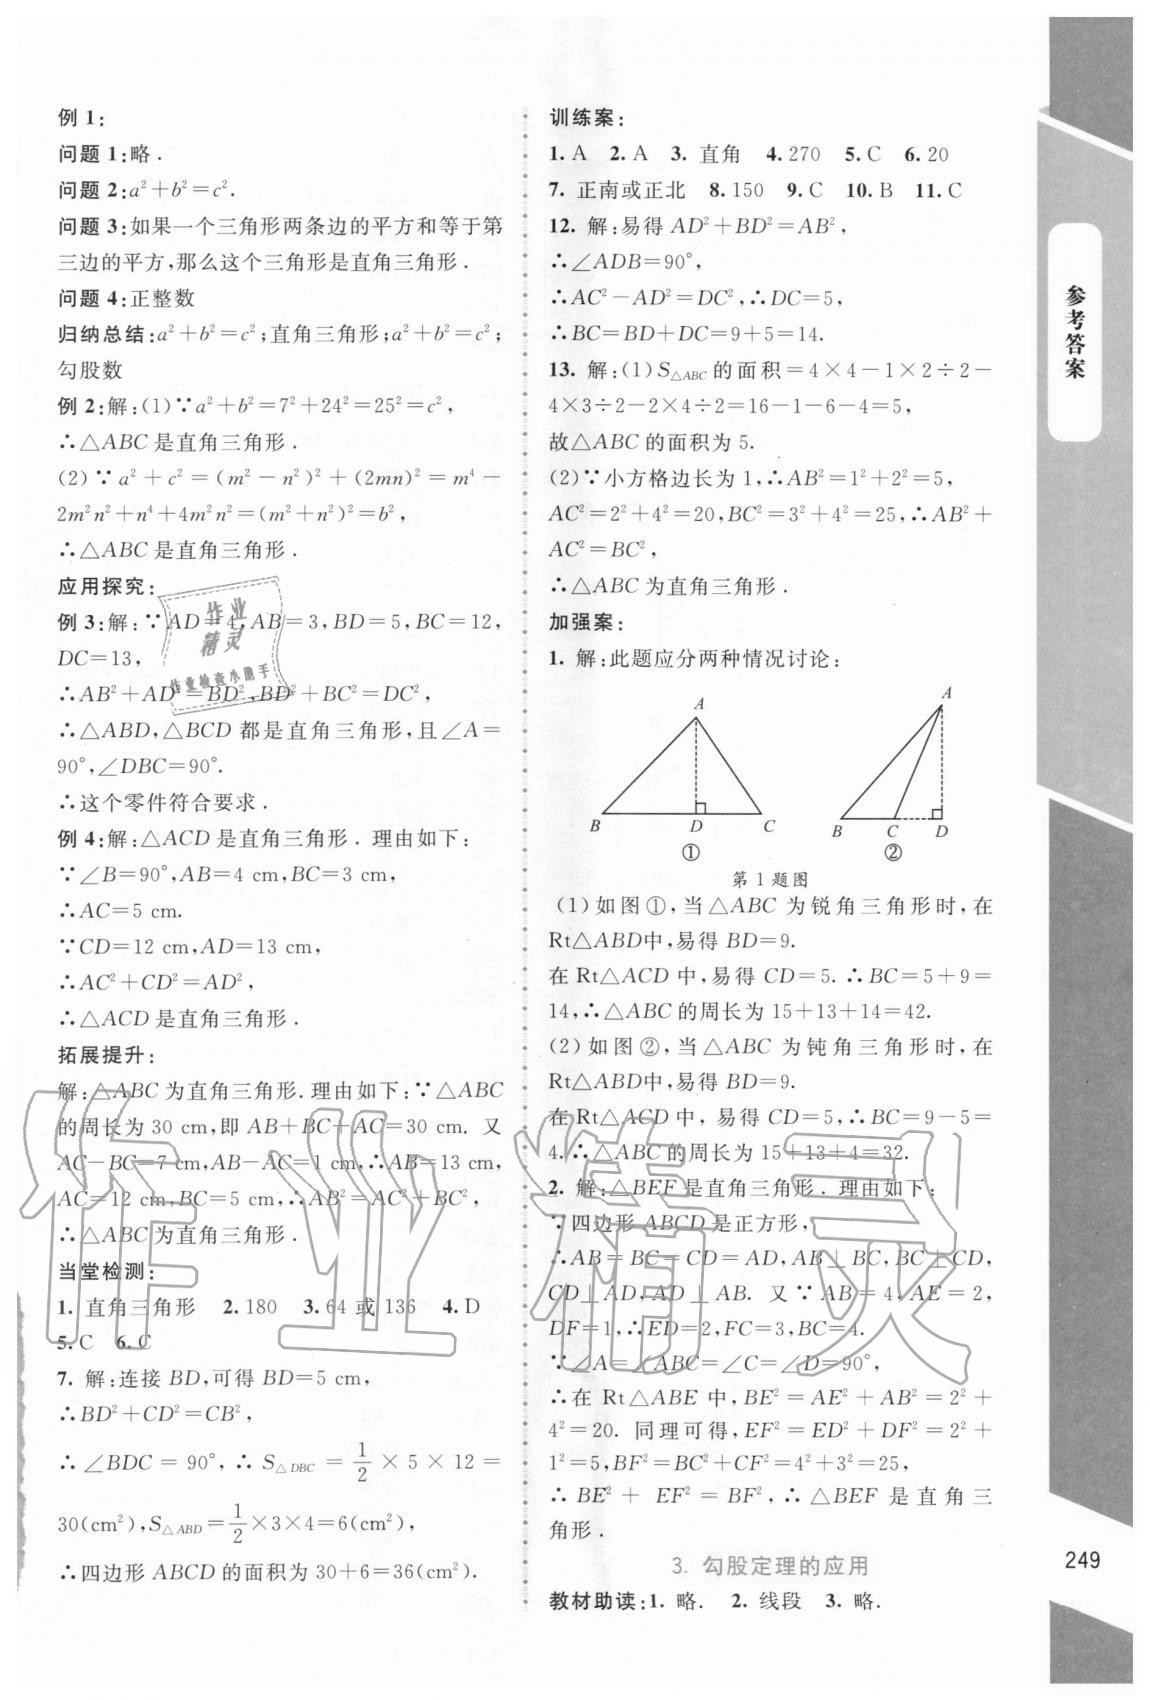 例 1:
问题 1:略.
问题 2:a²+b²=c².
问题 3:如果一个三角形两条边的平方和等于第
三边的平方,那么这个三角形是直角三角形.
问题 4:正整数
归纳总结:a²+b²=c²;直角三角形;a²+b²=c²;
勾股数
例 2:解:(1)∵a²+b²=7²+24²=25²=c²,
∴△ABC 是直角三角形.
(2)∵a²+c²=(m²-n²)²+(2mn)²=m⁴-
2m²n²+n⁴+4m²n²=(m²+n²)²=b²,
∴△ABC 是直角三角形.
应用探究:
例 3:解:∵AD=4,AB=3,BD=5,BC=12,
DC=13,
∴AB²+AD²=BD²,BD²+BC²=DC²,
∴△ABD,△BCD 都是直角三角形,且∠A=
90°,∠DBC=90°.
∴这个零件符合要求.
例 4:解:△ACD 是直角三角形. 理由如下:
∵∠B=90°,AB=4 cm,BC=3 cm,
∴AC=5 cm.
∵CD=12 cm,AD=13 cm,
∴AC²+CD²=AD²,
∴△ACD 是直角三角形.
拓展提升:
解:△ABC 为直角三角形.理由如下:∵△ABC
的周长为 30 cm,即 AB+BC+AC=30 cm. 又
AC-BC=7 cm,AB-AC=1 cm,∴AB=13 cm,
AC=12 cm,BC=5 cm,∴AB²=AC²+BC²,
∴△ABC 为直角三角形.
当堂检测:
1. 直角三角形 2. 180 3. 64 或 136 4. D
5. C 6. C
7. 解:连接 BD,可得 BD=5 cm,
∴BD²+CD²=CB²,
∴∠BDC=90°,∴S△DBC=1/2×5×12=
30(cm²),S△ABD=1/2×3×4=6(cm²),
∴四边形 ABCD 的面积为 30+6=36(cm²).
训练案:
1. A 2. A 3. 直角 4. 270 5. C 6. 20
7. 正南或正北 8. 150 9. C 10. B 11. C
12. 解:易得 AD²+BD²=AB²,
∴∠ADB=90°,
∴AC²-AD²=DC²,∴DC=5,
∴BC=BD+DC=9+5=14.
13. 解:(1)S△ABC 的面积=4×4-1×2÷2-
4×3÷2-2×4÷2=16-1-6-4=5,
故△ABC 的面积为 5.
(2)∵小方格边长为 1,∴AB²=1²+2²=5,
AC²=2²+4²=20,BC²=3²+4²=25,∴AB²+
AC²=BC²,
∴△ABC 为直角三角形.
加强案:
1. 解:此题应分两种情况讨论:
A
B D C
①
A
B C D
②
第 1 题图
(1)如图①,当△ABC 为锐角三角形时,在
Rt△ABD中,易得 BD=9.
在 Rt△ACD 中,易得 CD=5. ∴BC=5+9=
14,∴△ABC 的周长为 15+13+14=42.
(2)如图②,当△ABC 为钝角三角形时,在
Rt△ABD中,易得 BD=9.
在 Rt△ACD 中,易得 CD=5,∴BC=9-5=
4.∴△ABC 的周长为 15+13+4=32.
2. 解:△BEF 是直角三角形. 理由如下:
∵四边形 ABCD 是正方形,
∴AB=BC=CD=AD,AB⊥BC,BC⊥CD,
CD⊥AD,AD⊥AB. 又∵AB=4,AE=2,
DF=1,∴ED=2,FC=3,BC=4.
∵∠A=∠ABC=∠C=∠D=90°,
∴在 Rt△ABE 中,BE²=AE²+AB²=2²+
4²=20. 同理可得,EF²=ED²+DF²=2²+
1²=5,BF²=BC²+CF²=4²+3²=25,
∴BE²+EF²=BF²,∴△BEF 是直角三
角形.
3. 勾股定理的应用
教材助读:1. 略. 2. 线段 3. 略.
参考答案
249
作业
精灵
作业检查小助手
作业精灵